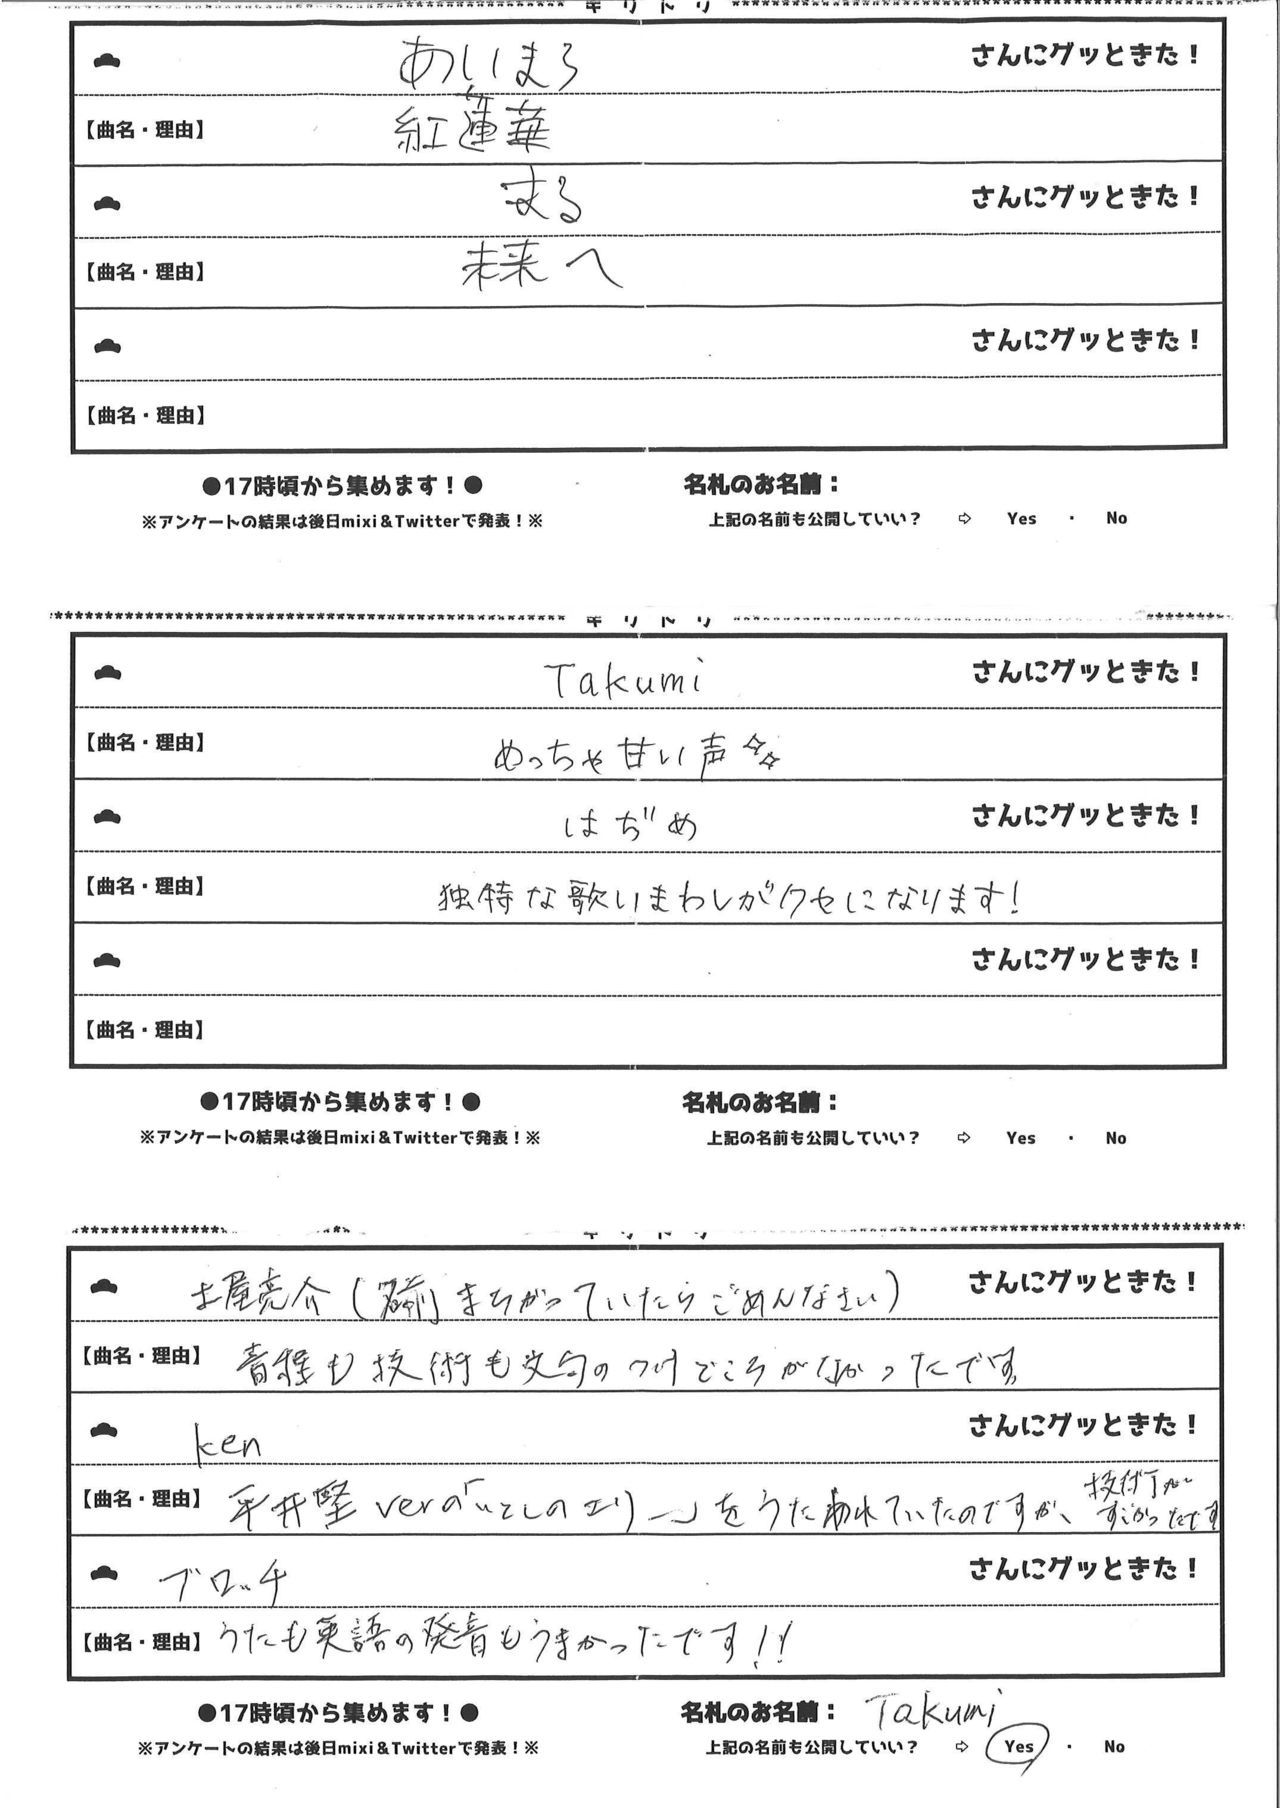 キリトリ
あいまろ さんにグッときた！
【曲名・理由】 紅蓮華
まる さんにグッときた！
【曲名・理由】 未来へ
さんにグッときた！
【曲名・理由】
●17時頃から集めます！● 名札のお名前：
※アンケートの結果は後日mixi＆Twitterで発表！※ 上記の名前も公開していい？ ⇨ Yes ・ No
キリトリ
Takumi さんにグッときた！
【曲名・理由】 めっちゃ甘い声☆☆
はぢめ さんにグッときた！
【曲名・理由】 独特な歌いまわしがクセになります！
さんにグッときた！
【曲名・理由】
●17時頃から集めます！● 名札のお名前：
※アンケートの結果は後日mixi＆Twitterで発表！※ 上記の名前も公開していい？ ⇨ Yes ・ No
キリトリ
土屋亮介(名前まちがっていたらごめんなさい) さんにグッときた！
【曲名・理由】 音程も技術も文句のつけどころがなかったです
ken さんにグッときた！
【曲名・理由】 平井堅verの「いとしのエリー」をうたわれていたのですが、技術がすごかったです
ブロッチ さんにグッときた！
【曲名・理由】 うたも英語の発音もうまかったです!!
●17時頃から集めます！● 名札のお名前： Takumi
※アンケートの結果は後日mixi＆Twitterで発表！※ 上記の名前も公開していい？ ⇨ Yes ・ No